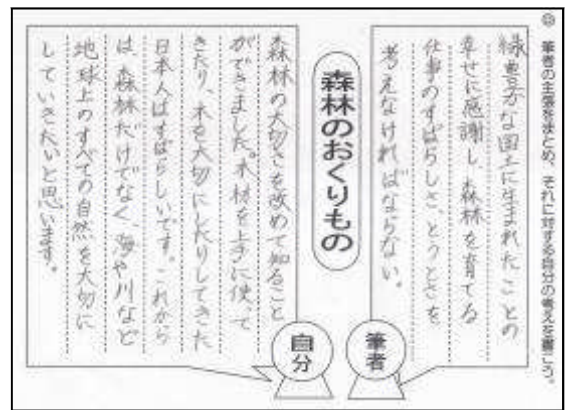 ◎ 筆者の主張をまとめ、それに対する自分の考えを書こう。
緑豊かな国土に生まれたことの
幸せに感謝し、森林を育てる
仕事のすばらしさ、とうとさを
考えなければならない。
筆者
森林のおくりもの
森林の大切さを改めて知ること
ができました。木材を上手に使って
きたり、木を大切にしたりしてきた
日本人はすばらしいです。これから
は、森林だけでなく、海や川など
地球上のすべての自然を大切に
していきたいと思います。
自分